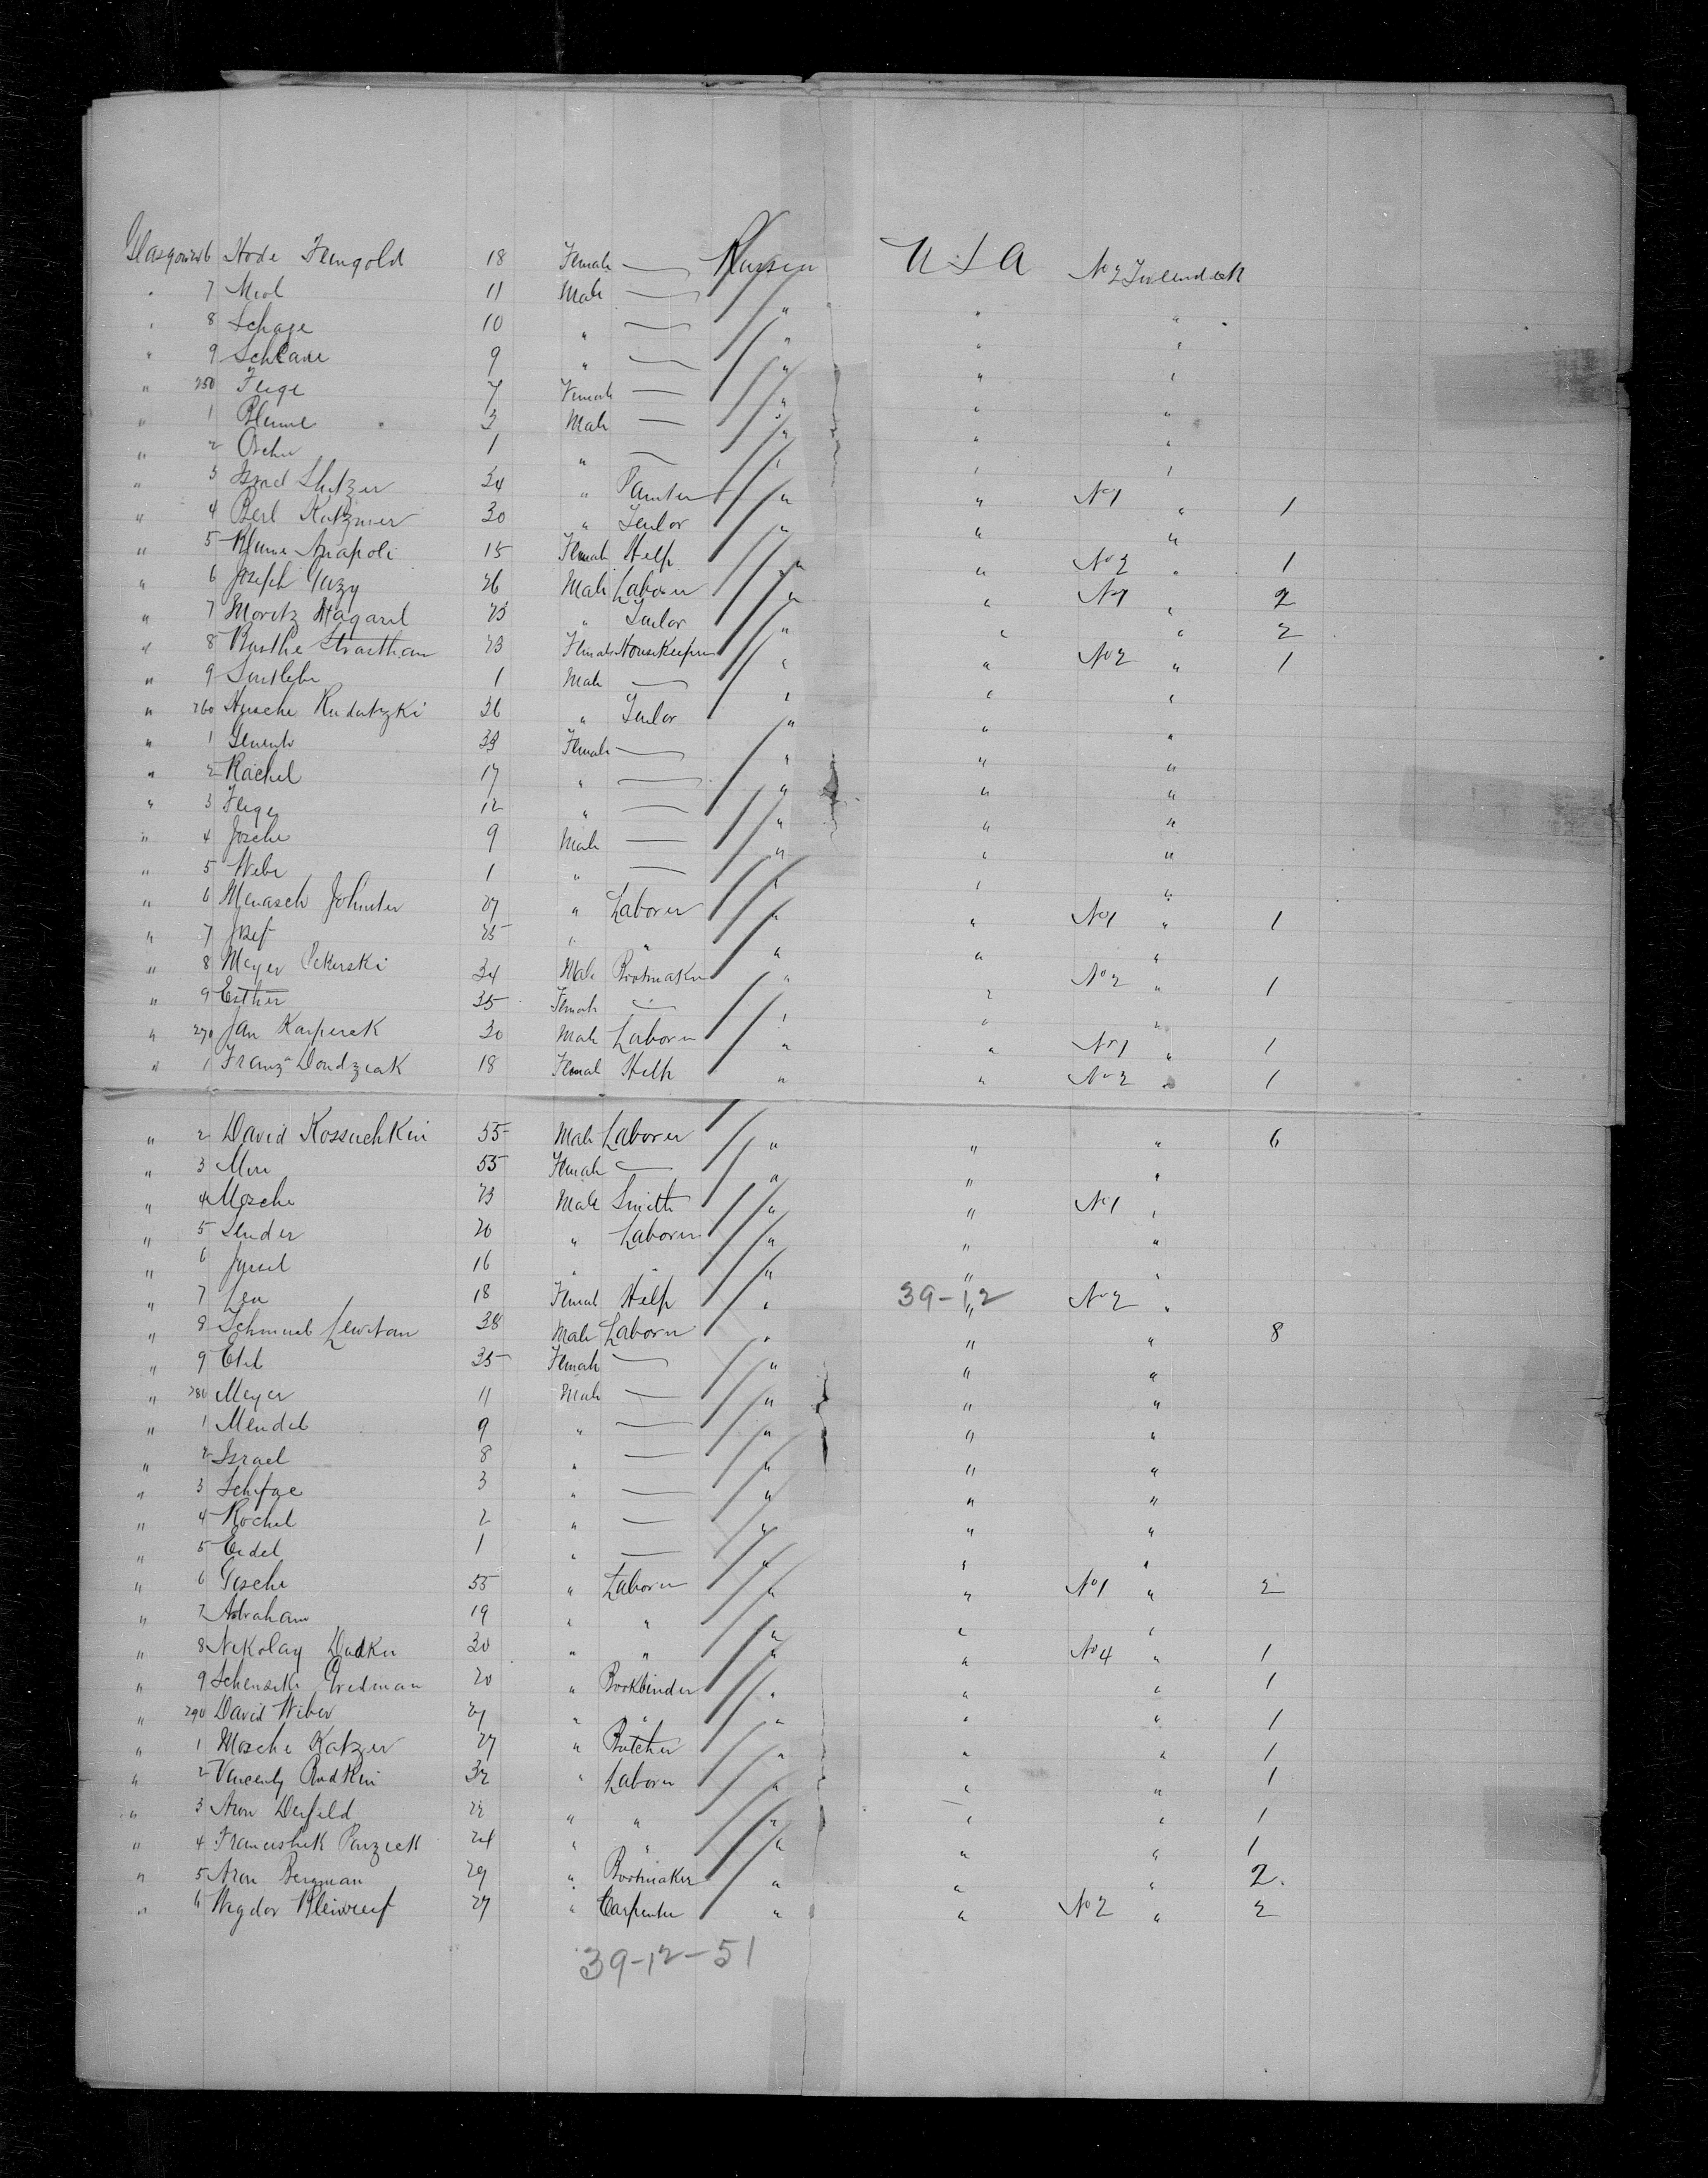 Glasgow 246 Hode Feingold 18 Female — Russia U S A No 2 Tweendeck
" 7 Meol 11 Male — " " "
" 8 Schage 10 " — " " "
" 9 Schlaue 9 " — " " "
" 250 Feige 7 Female — " " "
" 1 Blume 3 Male — " " "
" 2 1 " — " " "
" 3 Israel Slutzer 24 " Painter " " No 1 " 1
" 4 Berl Katzmer 30 " Tailor " " "
" 5 Blume Anapoli 15 Female Help " " No 2 " 1
" 6 Joseph 26 Male Laborer " " No 1 " 2
" 7 Moritz Hagard 23 " Tailor " " " 2
" 8 Basthe 23 Female Housekeeper " " No 2 " 1
" 9 1 Male — " " "
" 260 Hersche Rudatzki 36 " Tailor " " "
" 1 33 Female — " " "
" 2 Rachel 17 " — " " "
" 3 Feige 12 " — " " "
" 4 Josche 9 Male — " " "
" 5 Webe 1 " — " " "
" 6 Menasch 27 " Laborer " " No 1 " 1
" 7 Josef 25 " " " " "
" 8 Meyer Pekerski 34 Male Bootmaker " " No 2 " 1
" 9 Esther 35 Female — " " "
" 270 Jan Karperek 30 Male Laborer " " No 1 " 1
" 1 Franz Dondzeak 18 Female Help " " No 2 " 1
" 2 David Kossuchkin 55 Male Laborer " " " 6
" 3 Mere 55 Female — " " "
" 4 Mosche 23 Male Smith " " No 1 "
" 5 Sender 20 " Laborer " " "
" 6 16 " " " " "
" 7 Lea 18 Female Help " 39-12 " No 2 "
" 8 Schmuel Lewitan 38 Male Laborer " " " 8
" 9 Etel 35 Female — " " "
" 280 Meyer 11 Male — " " "
" 1 Mendel 9 " — " " "
" 2 Israel 8 " — " " "
" 3 Schifge 3 " — " " "
" 4 Rochel 2 " — " " "
" 5 Eidel 1 " — " " "
" 6 55 " Laborer " " No 1 " 2
" 7 Abraham 19 " " " " "
" 8 Nikolay Dudkin 30 " " " " No 4 " 1
" 9 20 " Bookbinder " " " 1
" 290 David Wiber 21 " " " " " 1
" 1 Mosche Katzer 27 " Butcher " " " 1
" 2 Vincenty Rudkin 32 " Laborer " " " 1
" 3 Aron Derfeld 22 " " " " " 1
" 4 Francishek Panzieck 24 " " " " " 1
" 5 Aron Bergman 29 " Bootmaker " " " 2
" 6 Wigdor Bleiweif 27 " Carpenter " " No 2 " 2
39-12-51